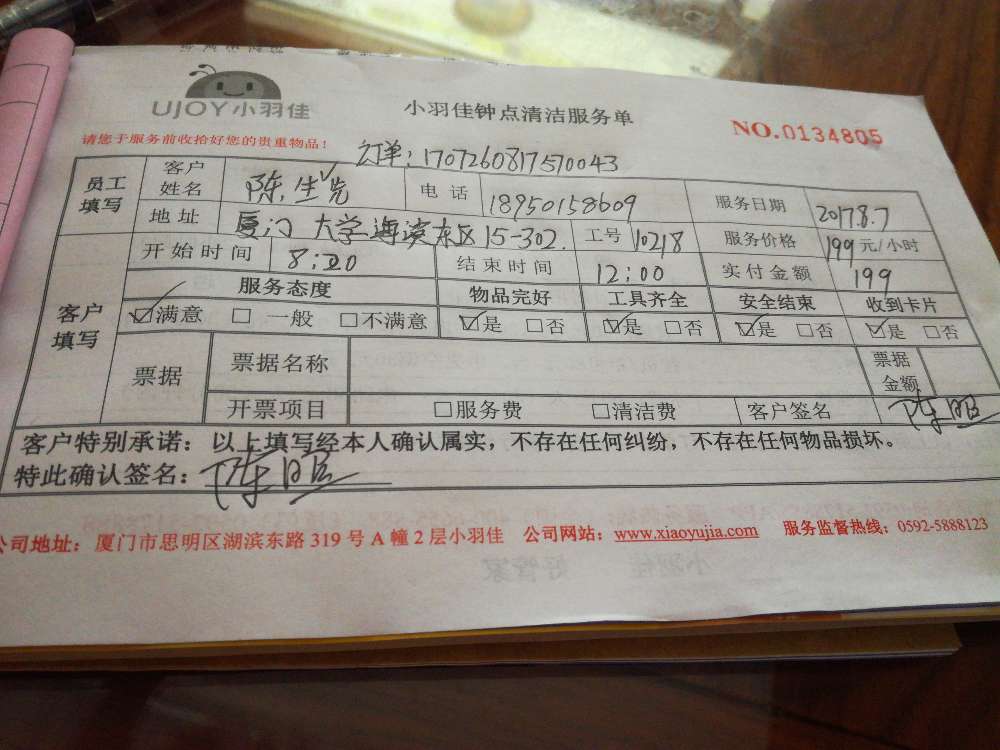 UJOY小羽佳
小羽佳钟点清洁服务单
NO.0134805
请您于服务前收拾好您的贵重物品！
订单：1707260817570043
员工填写 客户姓名 陈生先 电话 18950158609 服务日期 2017.8.7
地址 厦门大学海滨东区15-302. 工号 10218 服务价格 199元/小时
客户填写 开始时间 8:20 结束时间 12:00 实付金额 199
服务态度 物品完好 工具齐全 安全结束 收到卡片
☑满意 □一般 □不满意 ☑是 □否 ☑是 □否 ☑是 □否 ☑是 □否
票据 票据名称 票据金额
开票项目 □服务费 □清洁费 客户签名 陈
客户特别承诺：以上填写经本人确认属实，不存在任何纠纷，不存在任何物品损坏。
特此确认签名：陈
公司地址：厦门市思明区湖滨东路319号A幢2层小羽佳 公司网站：www.xiaoyujia.com 服务监督热线：0592-5888123